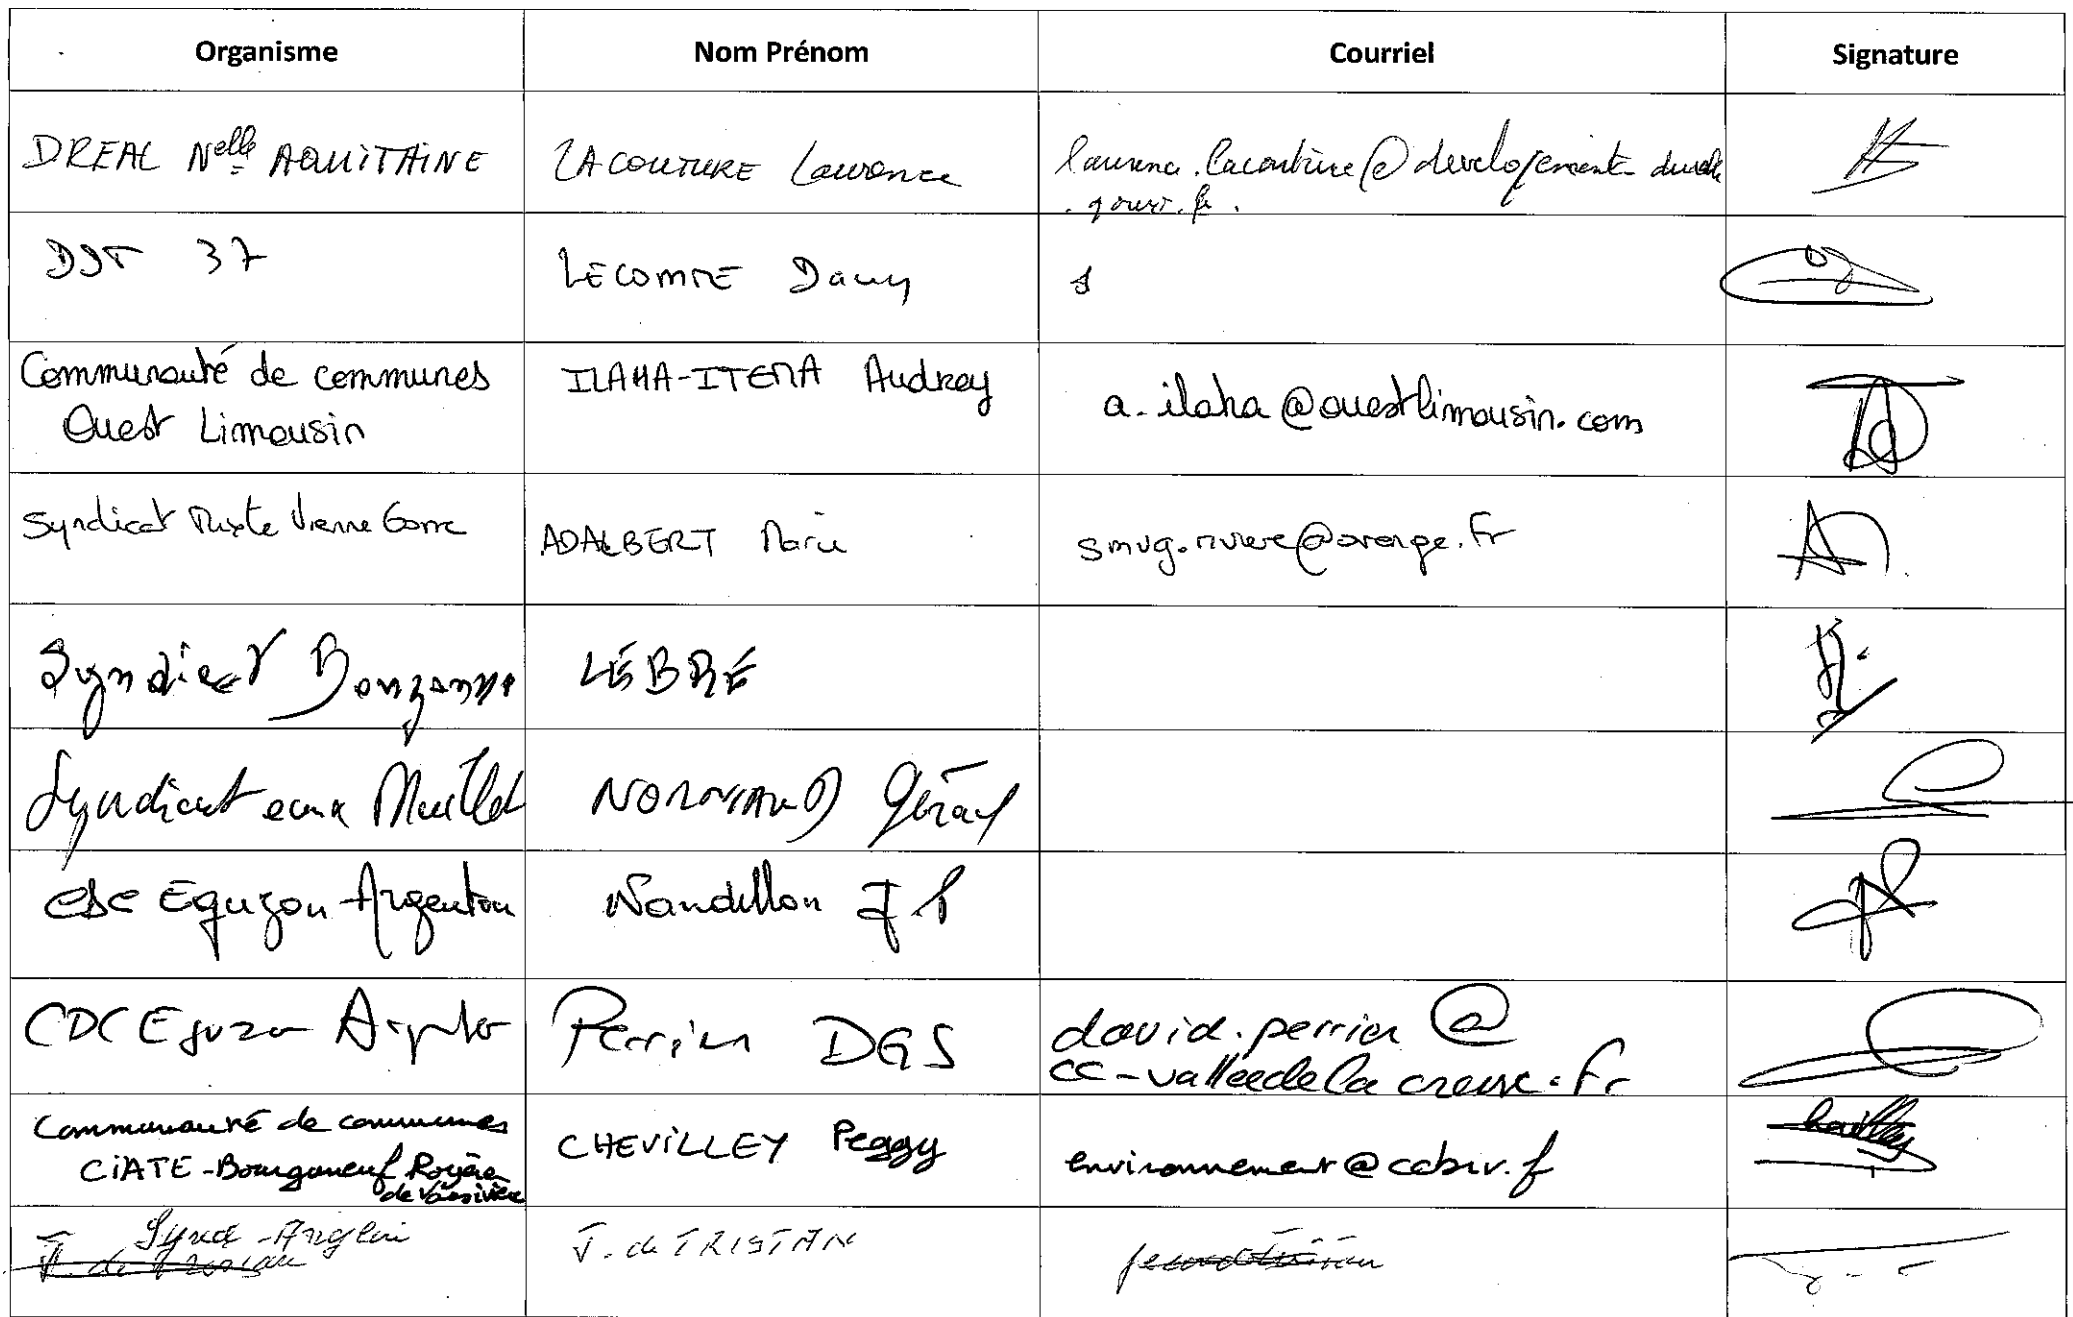 Organisme Nom Prénom Courriel Signature
DREAL Nelle AQUITAINE LACOUTURE Laurence laurence.lacouture@developpement-durable
.gouv.fr.
DDT 37 LECOMTE Dany
Communauté de communes ILAHA-ITEMA Audrey
Ouest Limousin a-ilaha@ouestlimousin.com
Syndicat Mixte Vienne Gorre ADALBERT Marie smvg.riviere@orange.fr
Syndicat Bouzanne LÉBRÉ
Syndicat eaux NORMAND Gérard
CDC Eguzon-Argenton Nandillon J.P
CDC Eguzon Argenton Perrin DGS david.perrin@
cc-valleedelacreuse.fr
Communauté de communes CHEVILLEY Peggy
CIATE-Bourganeuf Royère environnement@ccbrv.f
de Vassivière
Synd-Anglin J. de TRISTAN